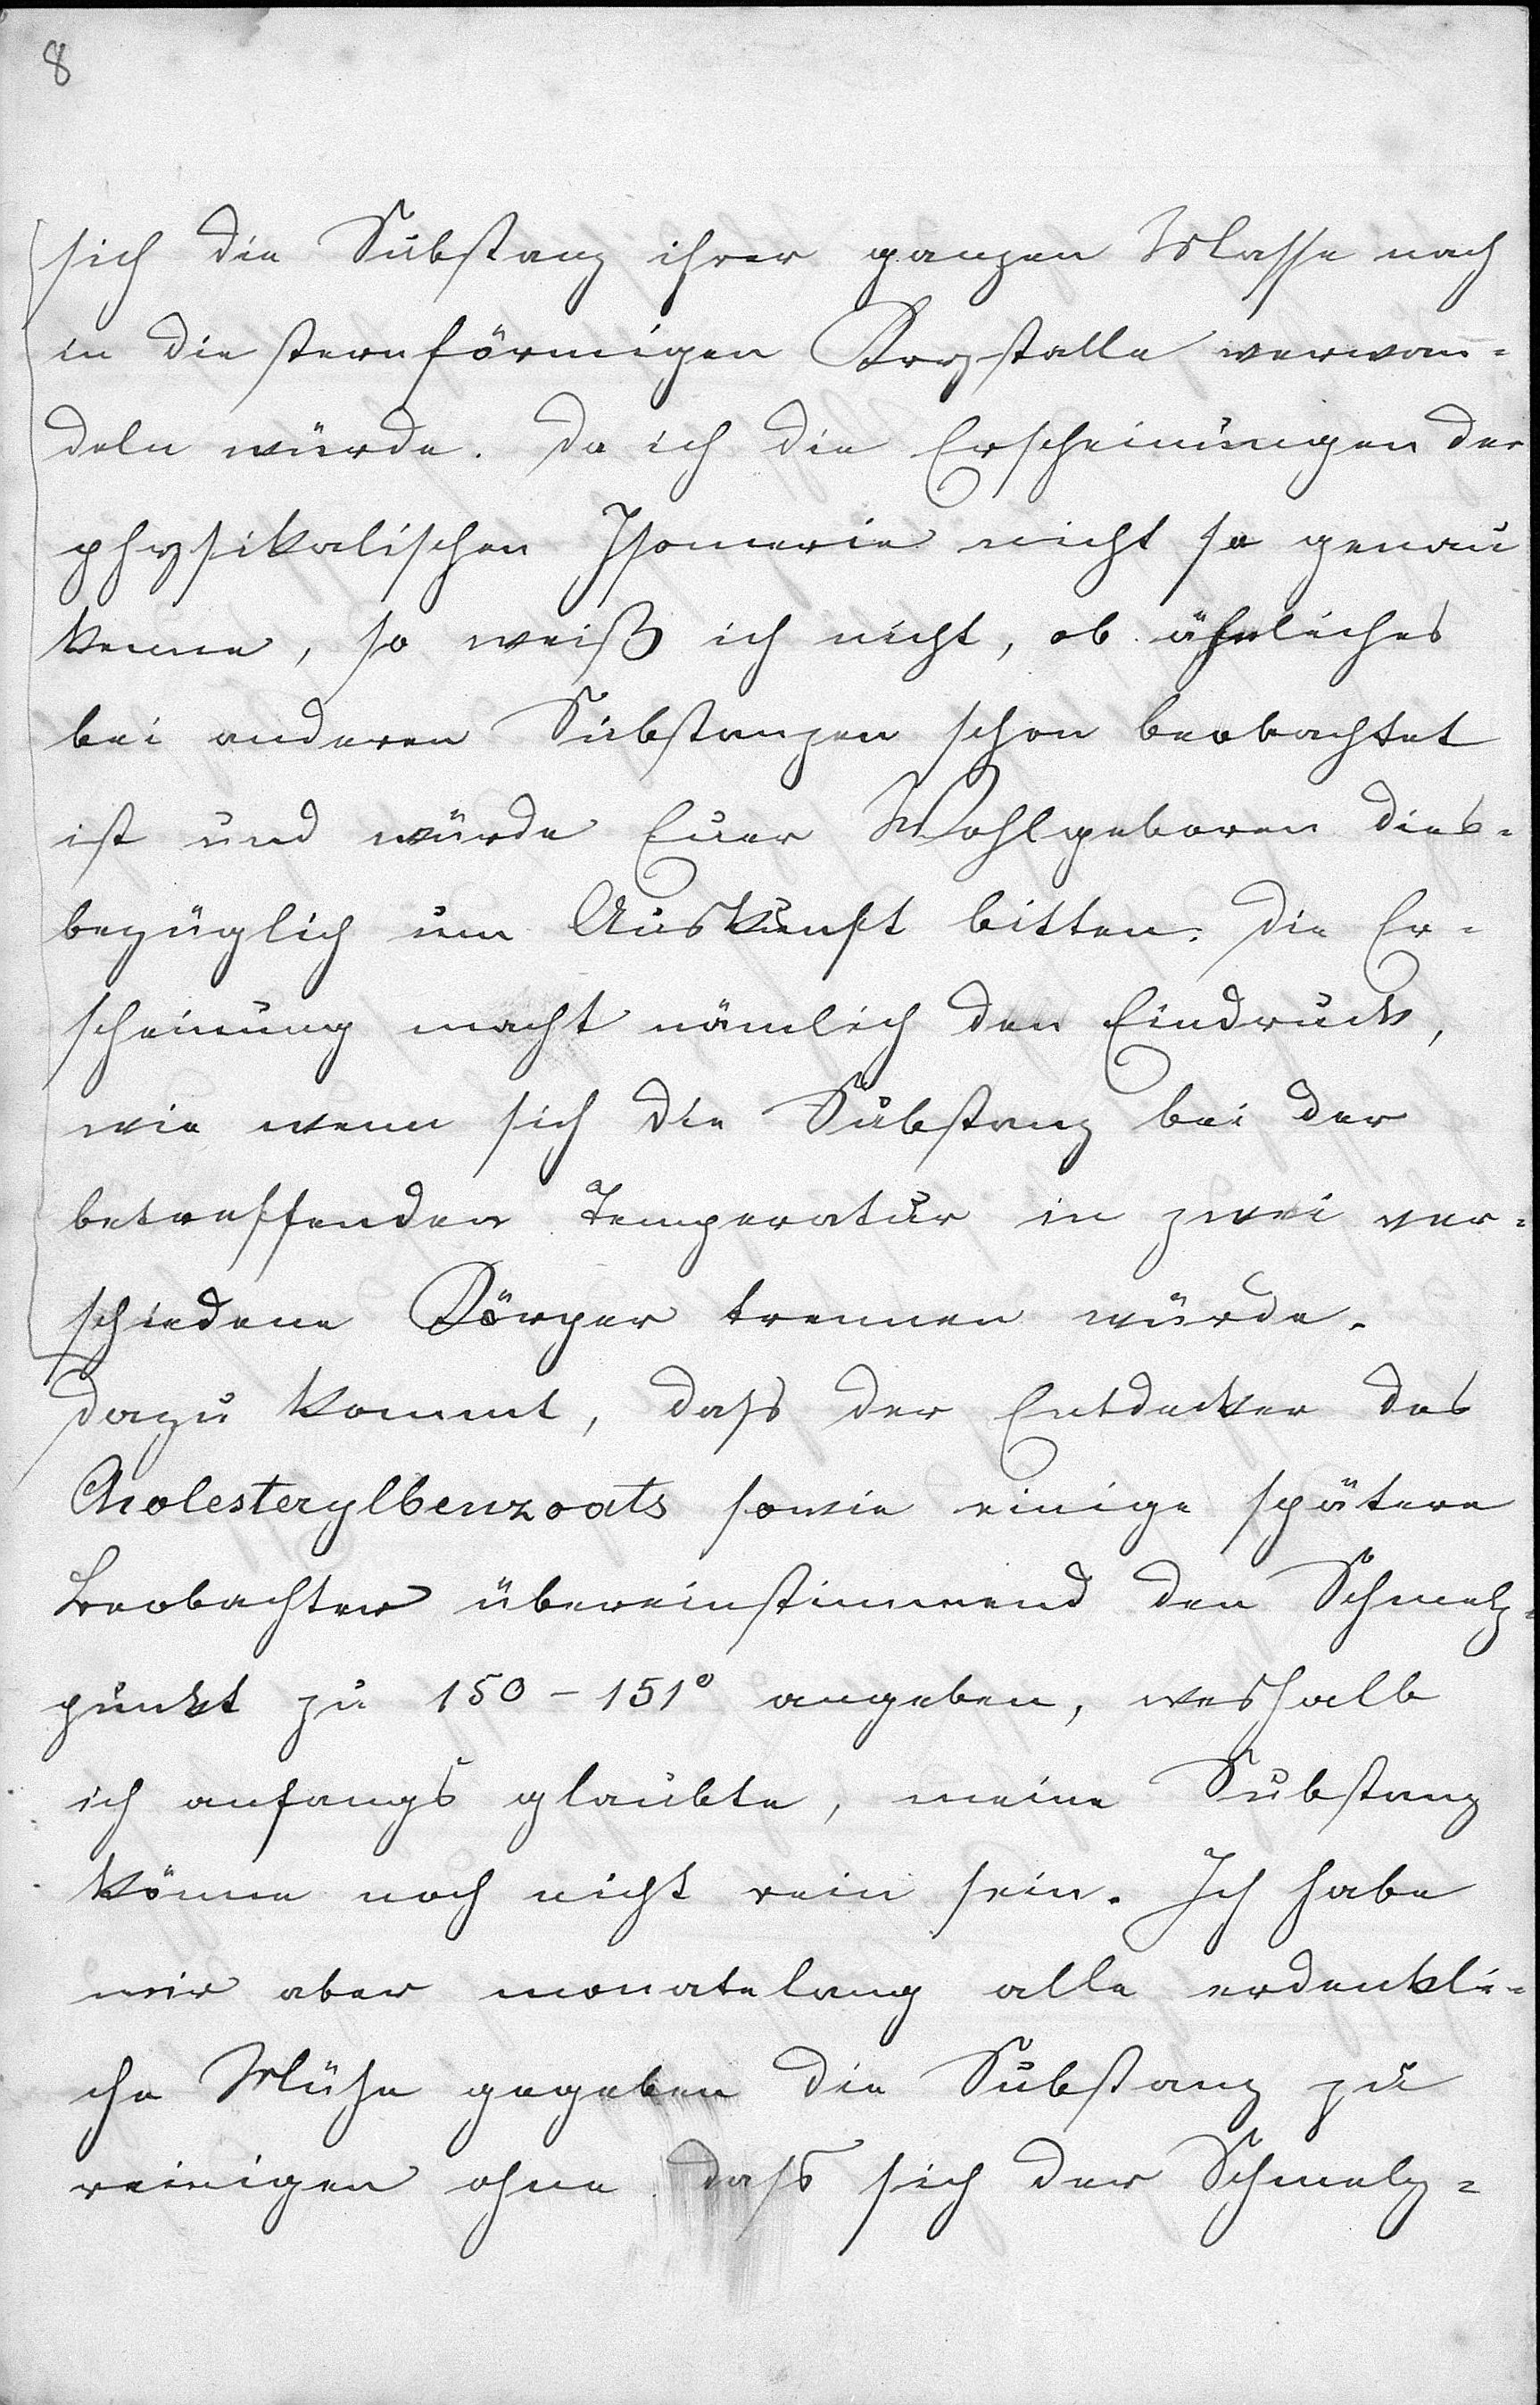 8
sich die Substanz ihrer ganzen Masse nach
in die sternförmigen Krystalle verwan-
deln würde. Da ich die Erscheinungen der
physikalischen Isomerie nicht so genau
kenne, so weiß ich nicht, ob ähnliches
bei anderen Substanzen schon beobachtet
ist und würde Euer Wohlgeboren dies-
bezüglich um Auskunft bitten. Die Er-
scheinung macht nämlich den Eindruck,
wie wenn sich die Substanz bei der
betreffenden Temperatur in zwei ver-
schiedene Körper trennen würde.
Dazu kommt, dass der Entdecker des
Cholesterylbenzoats sowie einige spätere
Beobachter übereinstimmend den Schmelz-
punkt zu 150-151° angeben, weshalb
ich anfangs glaubte, meine Substanz
könne noch nicht rein sein. Ich habe
mir aber monatelang alle erdenkli-
che Mühe gegeben die Substanz zu
reinigen ohne dass sich der Schmelz-